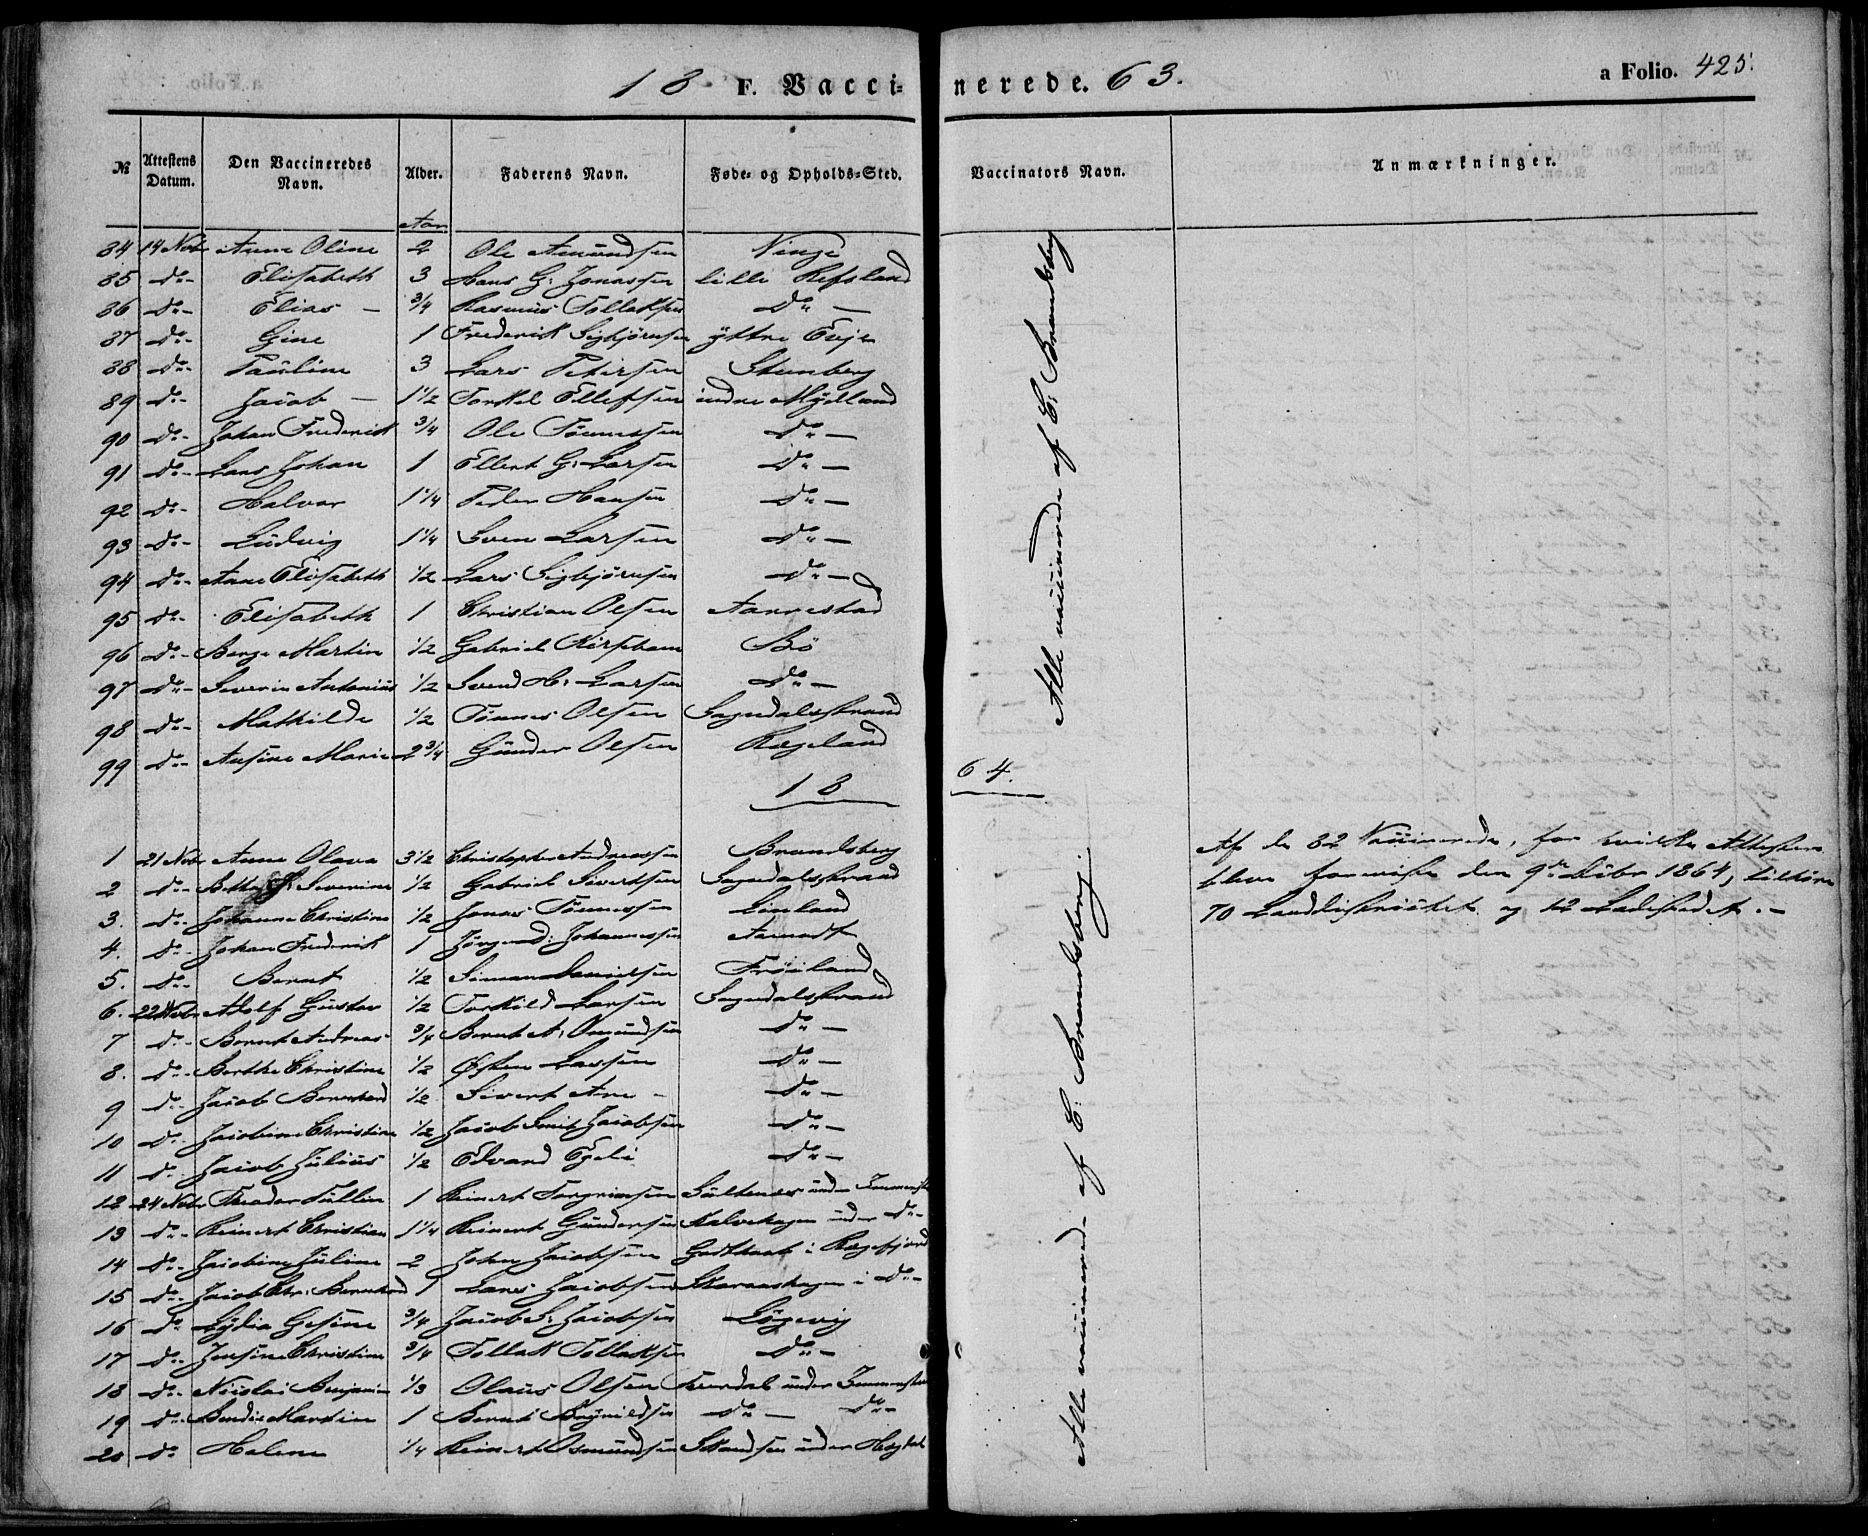 18 F. Vaccinerede. 63. a Folio. 425.
№ Attestens Datum. Den Vaccineredes Navn. Alder. Faderens Navn. Føde- og Opholds-Sted. Vaccinators Navn. Anmærkninger.
Aar
84 14 Nvbr Anne Oline 2 Ole Amundsen
85 Do- Elisabeth 3 Hans G: Jonassen lille Refsland
86 Do- Elias - 3/4 Rasmus Tollaksen Do -
87 Do- Gine 1 Frederik Sigbjørnsen ÿttre Evje
88 Do- Pauline 3 Lars Petersen Stenberg
89 Do- Jacob - 1 1/2 Torkel Ellefsen indre Mÿdland
90 Do- Johan Frederik 3/4 Ole Tönnessen Do -
91 Do- Lars Johan 1 Ellert G: Larsen Do -
92 Do- Halvor 1 1/4 Peder Hansen Do -
93 Do- Ludvig 1 1/4 Sven Larsen Do -
94 Do- Anne Elisabeth 1/2 Lars Sigbjörnsen Do -
95 Do- Elisabeth 1 Christian Olsen Aarrestad
96 Do- Berge Martin 1/2 Gabriel Kirsebom Bö
97 Do- Severin Antonius 1/2 Svend H: Larsen Do -
98 Do- Mathilde 1/2 Tönnes Olsen Sogndalsstrand
99 Do- Ansine Marie 2 3/4 Gunder Olsen Rægeland
Alle vaccinerede af E: Brandsberg
18 64.
1 21 Nvbr Anne Olava 3 1/2 Christopher Andreassen Brandsberg
2 Do- Severine 1/2 Gabriel Sivertsen Sogndalsstrand
3. Do- Johanne Christine 1/2 Jonas Tönnessen Linland
4. Do- Johan Frederik 1 Jörgen Johannessen Aamodt
5. Do- Bernt 1/2 Simon Danielsen Fröiland
6. 22 Nvbr Adolf Gustav 1/2 Torkild Larsen Sogndalsstrand
7 Do- Bernt Andreas 3/4 Bernt A: Omundsen Do -
8. Do- Berthe Christine 1/2 Østen Larsen Do -
9 Do- Jacob Bernhard 1/2 Sivert Are - Do -
10 Do- Jacobine Christine 1/2 Jacob Smit Jacobsen Do -
11 Do- Jacob Julius 1/2 Edvard Egeli Do -
12 24 Nvbr Theodor Tullin 1 Reinert Torgrimsen
13 Do- Reinert Christian 1 1/4 Reinert Gundersen Kalvehagen under Do-
14 Do- Jacobine Juline 2 John Jacobsen Godthaab i Rægefjord
15 Do- Jacob Chr: Bernhard 1 Lars Jacobsen i Do-
16 Do Lÿdia Gesine 3/4 Jacob S: Jacobsen Lögevig
17 Do- Jensine Christine 3/4 Tollak Tollaksen Do -
18 Do- Nicolai Benjamin 1/3 Olaus Olsen under
19 Do- Martin 1 Bernt Do - Do-
20 Do Helene 1/4 Reinert Osmundsen Skandsen under
Alle vaccinerede af E: Brandsberg.
Af de 82 Vaccinerede, for hvilke Attester
bleve foreviste den 9de Débr 1864, tilhöre
70 Landdistrictet og 12 Ladestedet. -